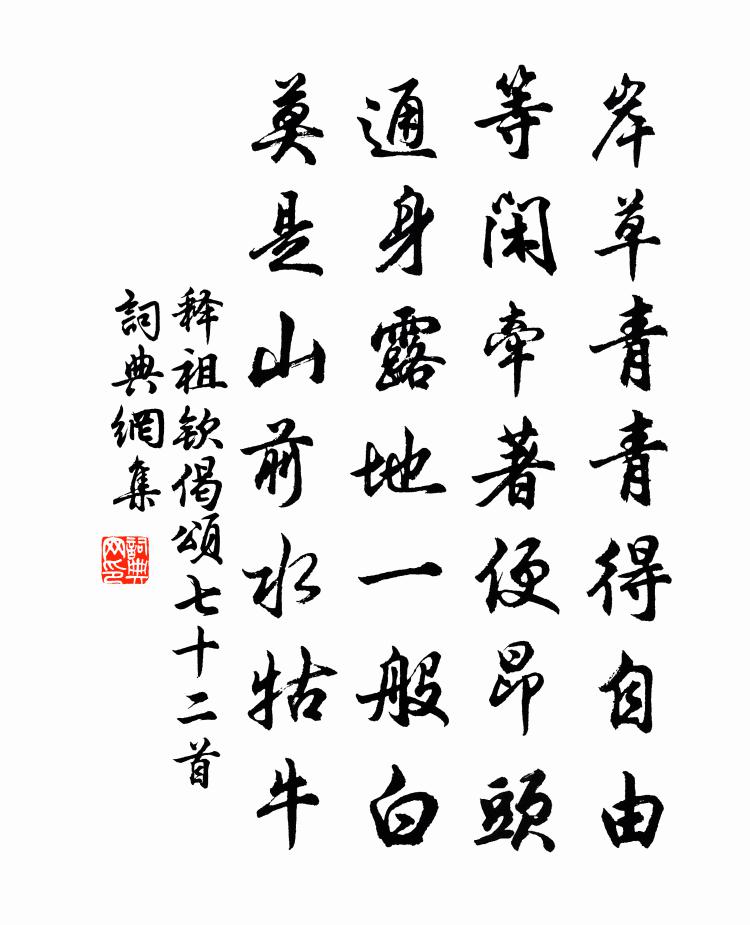 岸草青青得自由
等閑牽著便昂頭
通身露地一般白
莫是山前水牯牛
释祖欽偈頌七十二首
詞典網集
詞典网印